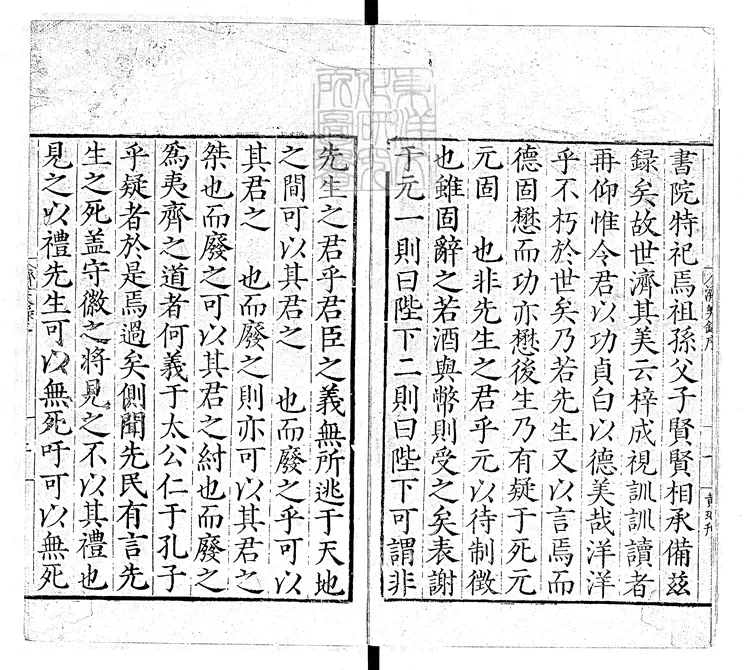 書院特祀焉祖孫父子賢賢相承備茲
録矣故世濟其美云梓成視訓訓讀者
再仰惟令君以功貞白以德美哉洋洋
乎不朽於世矣乃若先生又以言焉而
德固懋而功亦懋後生乃有疑于死元
元固　也非先生之君乎元以待制徴
也雖固辭之若酒與幣則受之矣表謝
于元一則曰陛下二則曰陛下可謂非
先生之君乎君臣之義無所逃于天地
之間可以其君之　也而廢之乎可以
其君之　也而廢之則亦可以其君之
桀也而廢之可以其君之紂也而廢之
爲夷齊之道者何義于太公仁于孔子
乎疑者於是焉過矣側聞先民有言先
生之死盖守徽之將見之不以其禮也
見之以禮先生可以無死吁可以無死